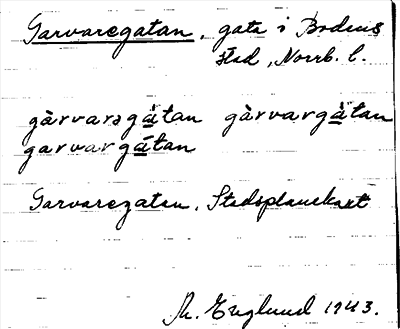 Garvaregatan, gata i Bodens
stad, Norrb. l.
gàrvarəgàtan gàrvargàtan
garvargátan
Garvaregatan. Stadsplanekart
M. Englund 1943.